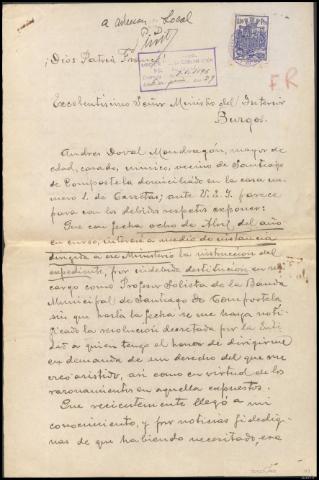 a adecuar Local
¡Dios Patria Franco!
Excelentísimo Señor Ministro del Interior
Burgos.
FR
Andrés Doval Mondragón, mayor de
edad, casado, músico, vecino de Santiago
de Compostela domiciliado en la casa nú-
mero 1. de Carretas; ante V.E.
para con los debidos respetos exponer:
Que con fecha ocho de Abril del año
en curso, interesa a medio de instancia
dirigida a ese Ministerio la instrucción del
expediente, por indebida destitución en su
cargo como Profesor Solista de la Banda
Municipal de Santiago de Compostela
sin que hasta la fecha se me haya noti-
ficado la resolución decretada por la Enti-
dad a quien tengo el honor de dirigirme
en demanda de un derecho del que me
creo asistido, así como en virtud de los
razonamientos en aquella expuestos.
Que recientemente llegó a mi
conocimiento, y por noticias fidedig-
nas de que habiendo necesitado, esa